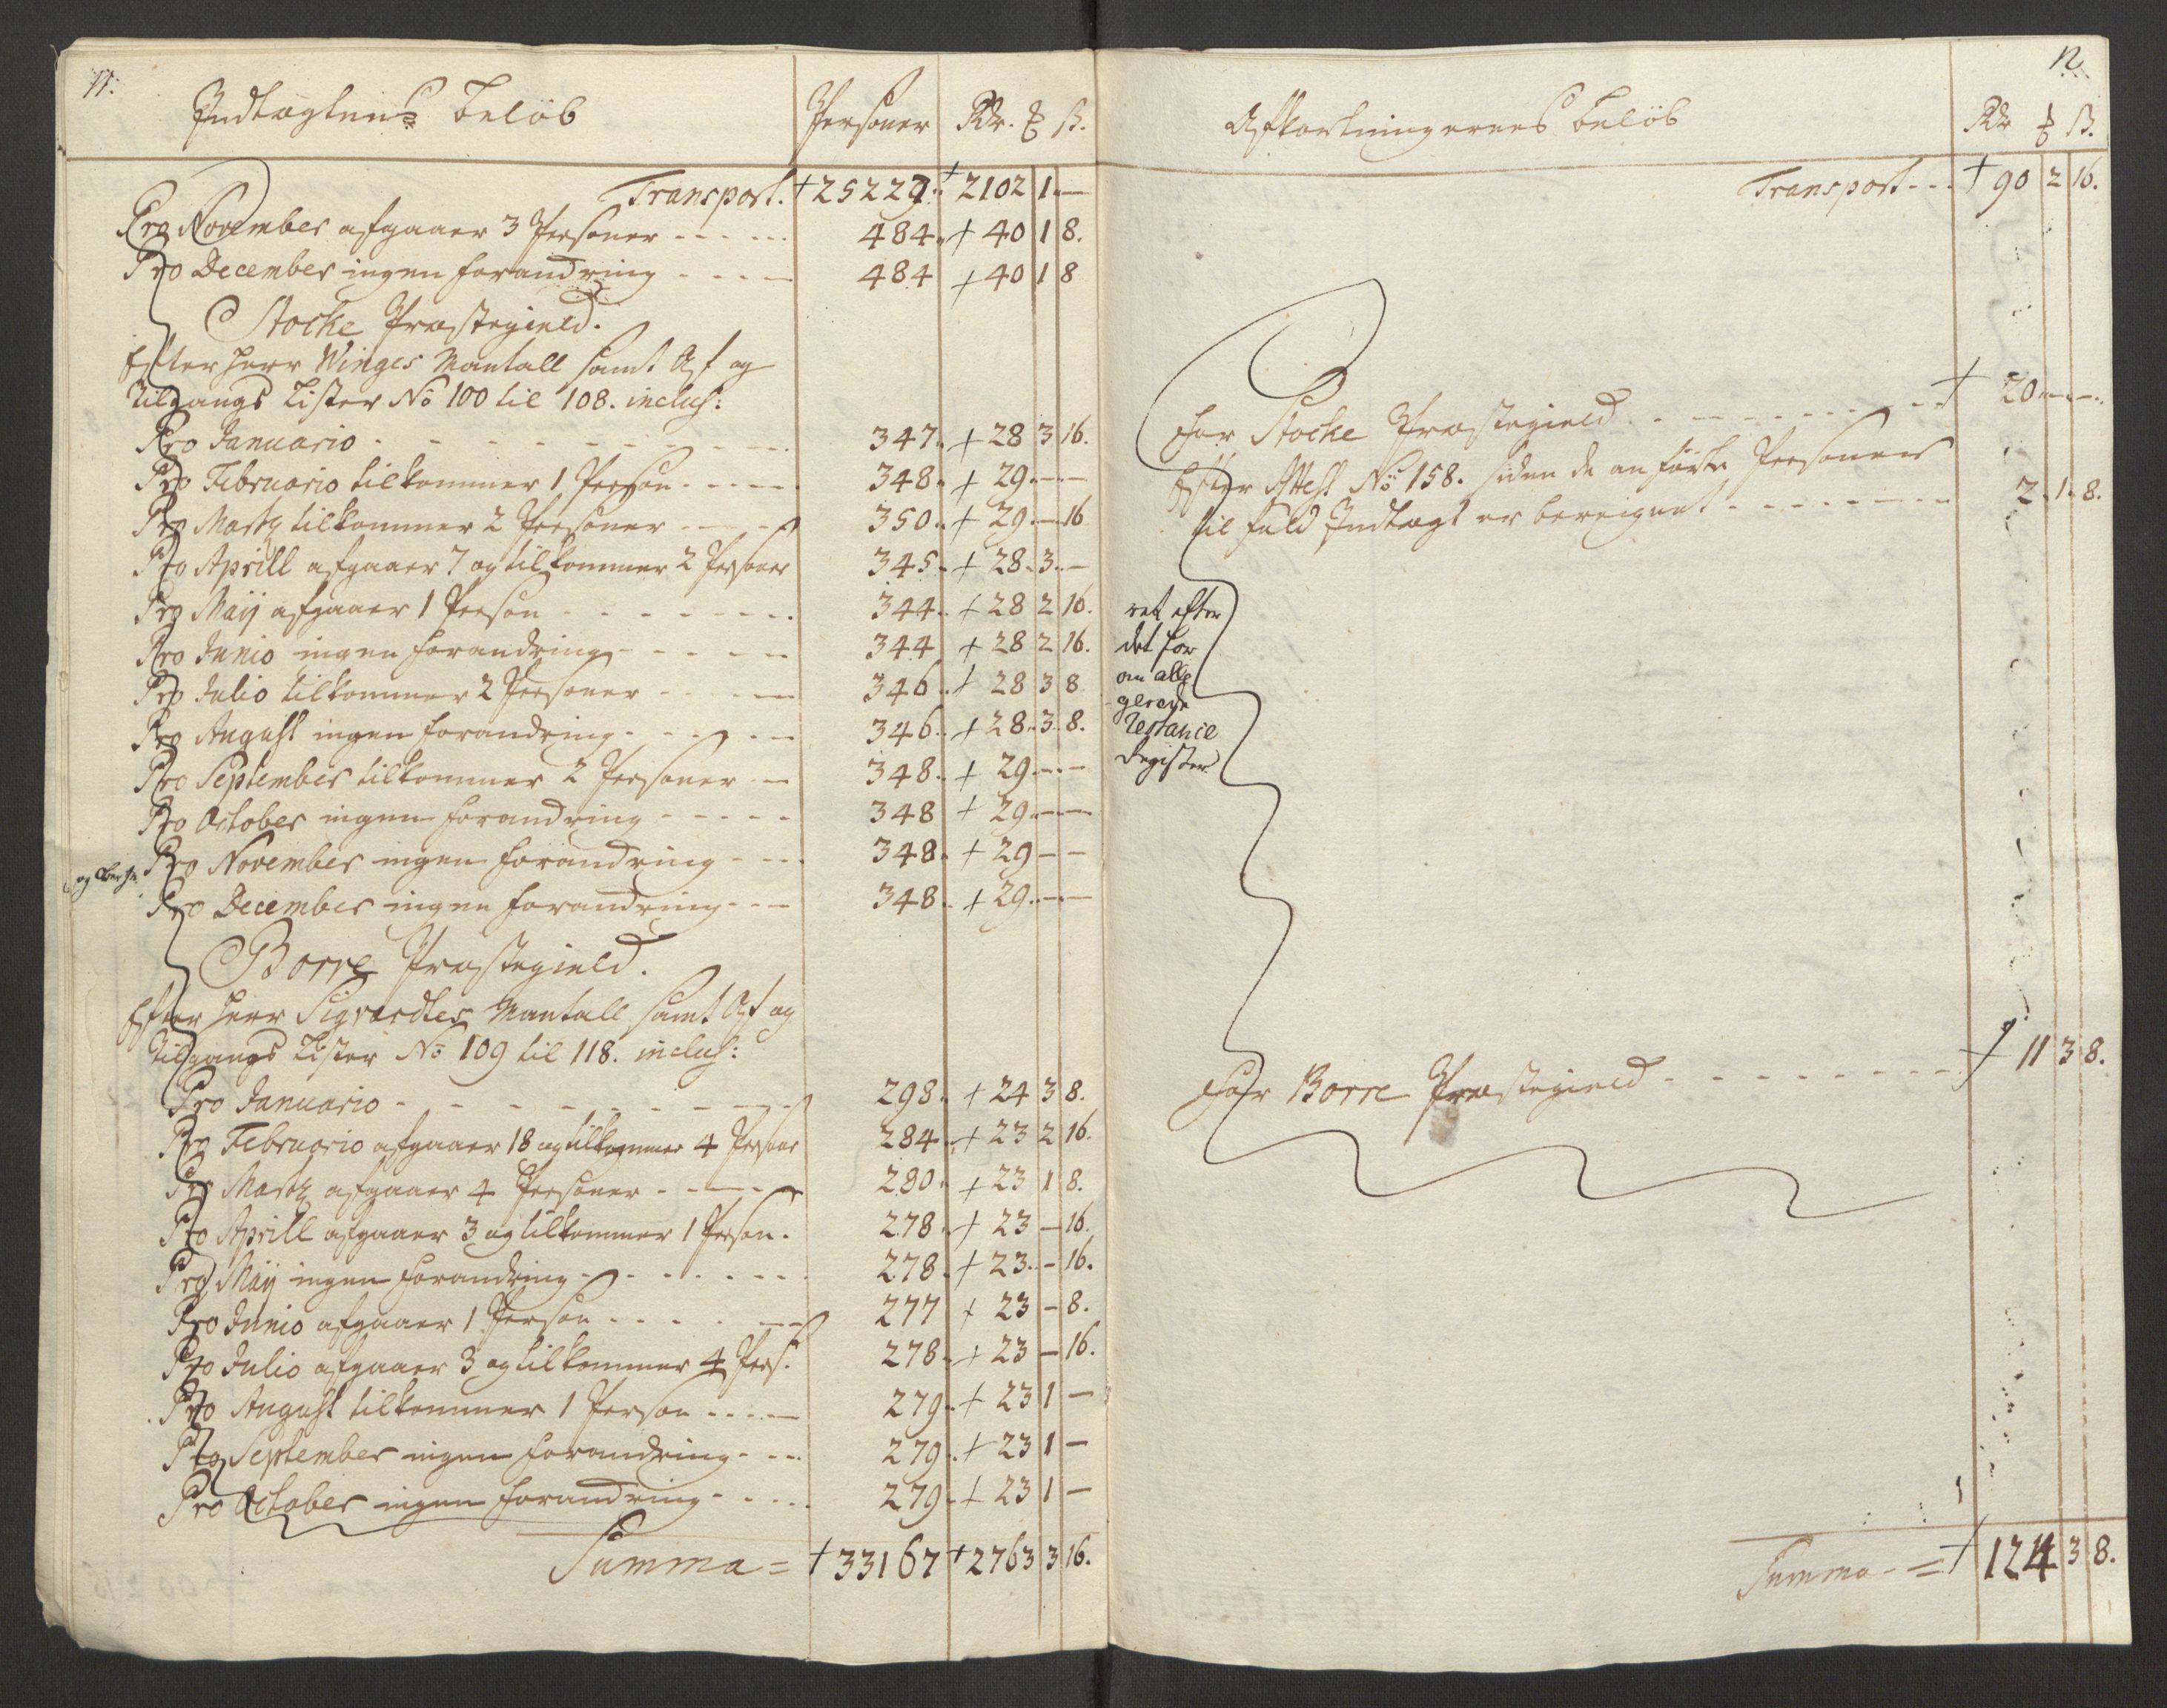 11.
Indtægtens Beløb Personer Rdr. ort ß.
Transport. + 25227. + 2102 1 —
Pro November afgaaer 3 Personer - - - - - 484. + 40 1 8.
Pro December ingen forandring - - - - 484 + 40 1 8
Stocke Præstegield.
Efter Herr Winges Mantall samt Af og
Tilgangs Lister No 100 til 108. inclus:
Pro Januario - - - - - - - - 347. + 28 3 16.
Pro Februario tilkommer 1 Person - - - - 348. + 29 — —
Pro Martz tilkommer 2 Personer - - - - 350. + 29 — 16
Pro Aprill afgaaer 7 og tilkommer 2 Personer 345. + 28. 3. —
Pro Maij afgaaer 1 Person - - - - - - 344. + 28 2 16.
Pro Junio ingen forandring - - - - - 344 + 28 2 16.
Pro Julio tilkommer 2 Personer - - - - 346. + 28 3 8
Pro August ingen forandring - - - - - 346. + 28. 3. 8.
Pro September tilkommer 2 Personer - - 348. + 29. — —
Pro October ingen forandring - - - - - 348 + 29. — —
Pro November ingen forandring - - - 348. + 29 — —
Pro December ingen forandring - - - 348. + 29. — —
Borre Præstegield.
Efter Herr Sigvardtes Mantall samt Af og
Tilgangs Lister No 109 til 118. inclus:
Pro Januario - - - - - - - - 298. + 24 3 8.
Pro Februario afgaaer 18 og tilkommer 4 Personer 284. + 23 2 16.
Pro Martz afgaaer 4 Personer - - - - 280. + 23 1 8.
Pro Aprill afgaaer 3 og tilkommer 1 Person. 278. + 23 — 16.
Pro Maij ingen forandring - - - - - - 278. + 23. — 16.
Pro Junio afgaaer 1 Person - - - - - - 277 + 23 — 8.
Pro Julio afgaaer 3 og tilkommer 4 Pers: 278. + 23 — 16.
Pro August tilkommer 1 Person - - - - 279. + 23 1 —
Pro September ingen forandring - - - 279. + 23 1 —
Pro October ingen forandring - - - - 279. + 23 1 —
Summa = + 33167 + 2763 3 16.
12
Afkortningernes Beløb Rdr ort ß.
Transport - - - + 90 2 16.
For Stocke Præstegield - - - - - - - + 20 — —
Efter Attest No 158. siden de anførte Personer
til fuld Indtægt er beregnet - - - - - - 2. 1. 8.
ret efter
det for
an alle
gerede
Restance
Register
For Borre Præstegield - - - - - - - - + 11 3 8.
Summa - = + 124 3 8.